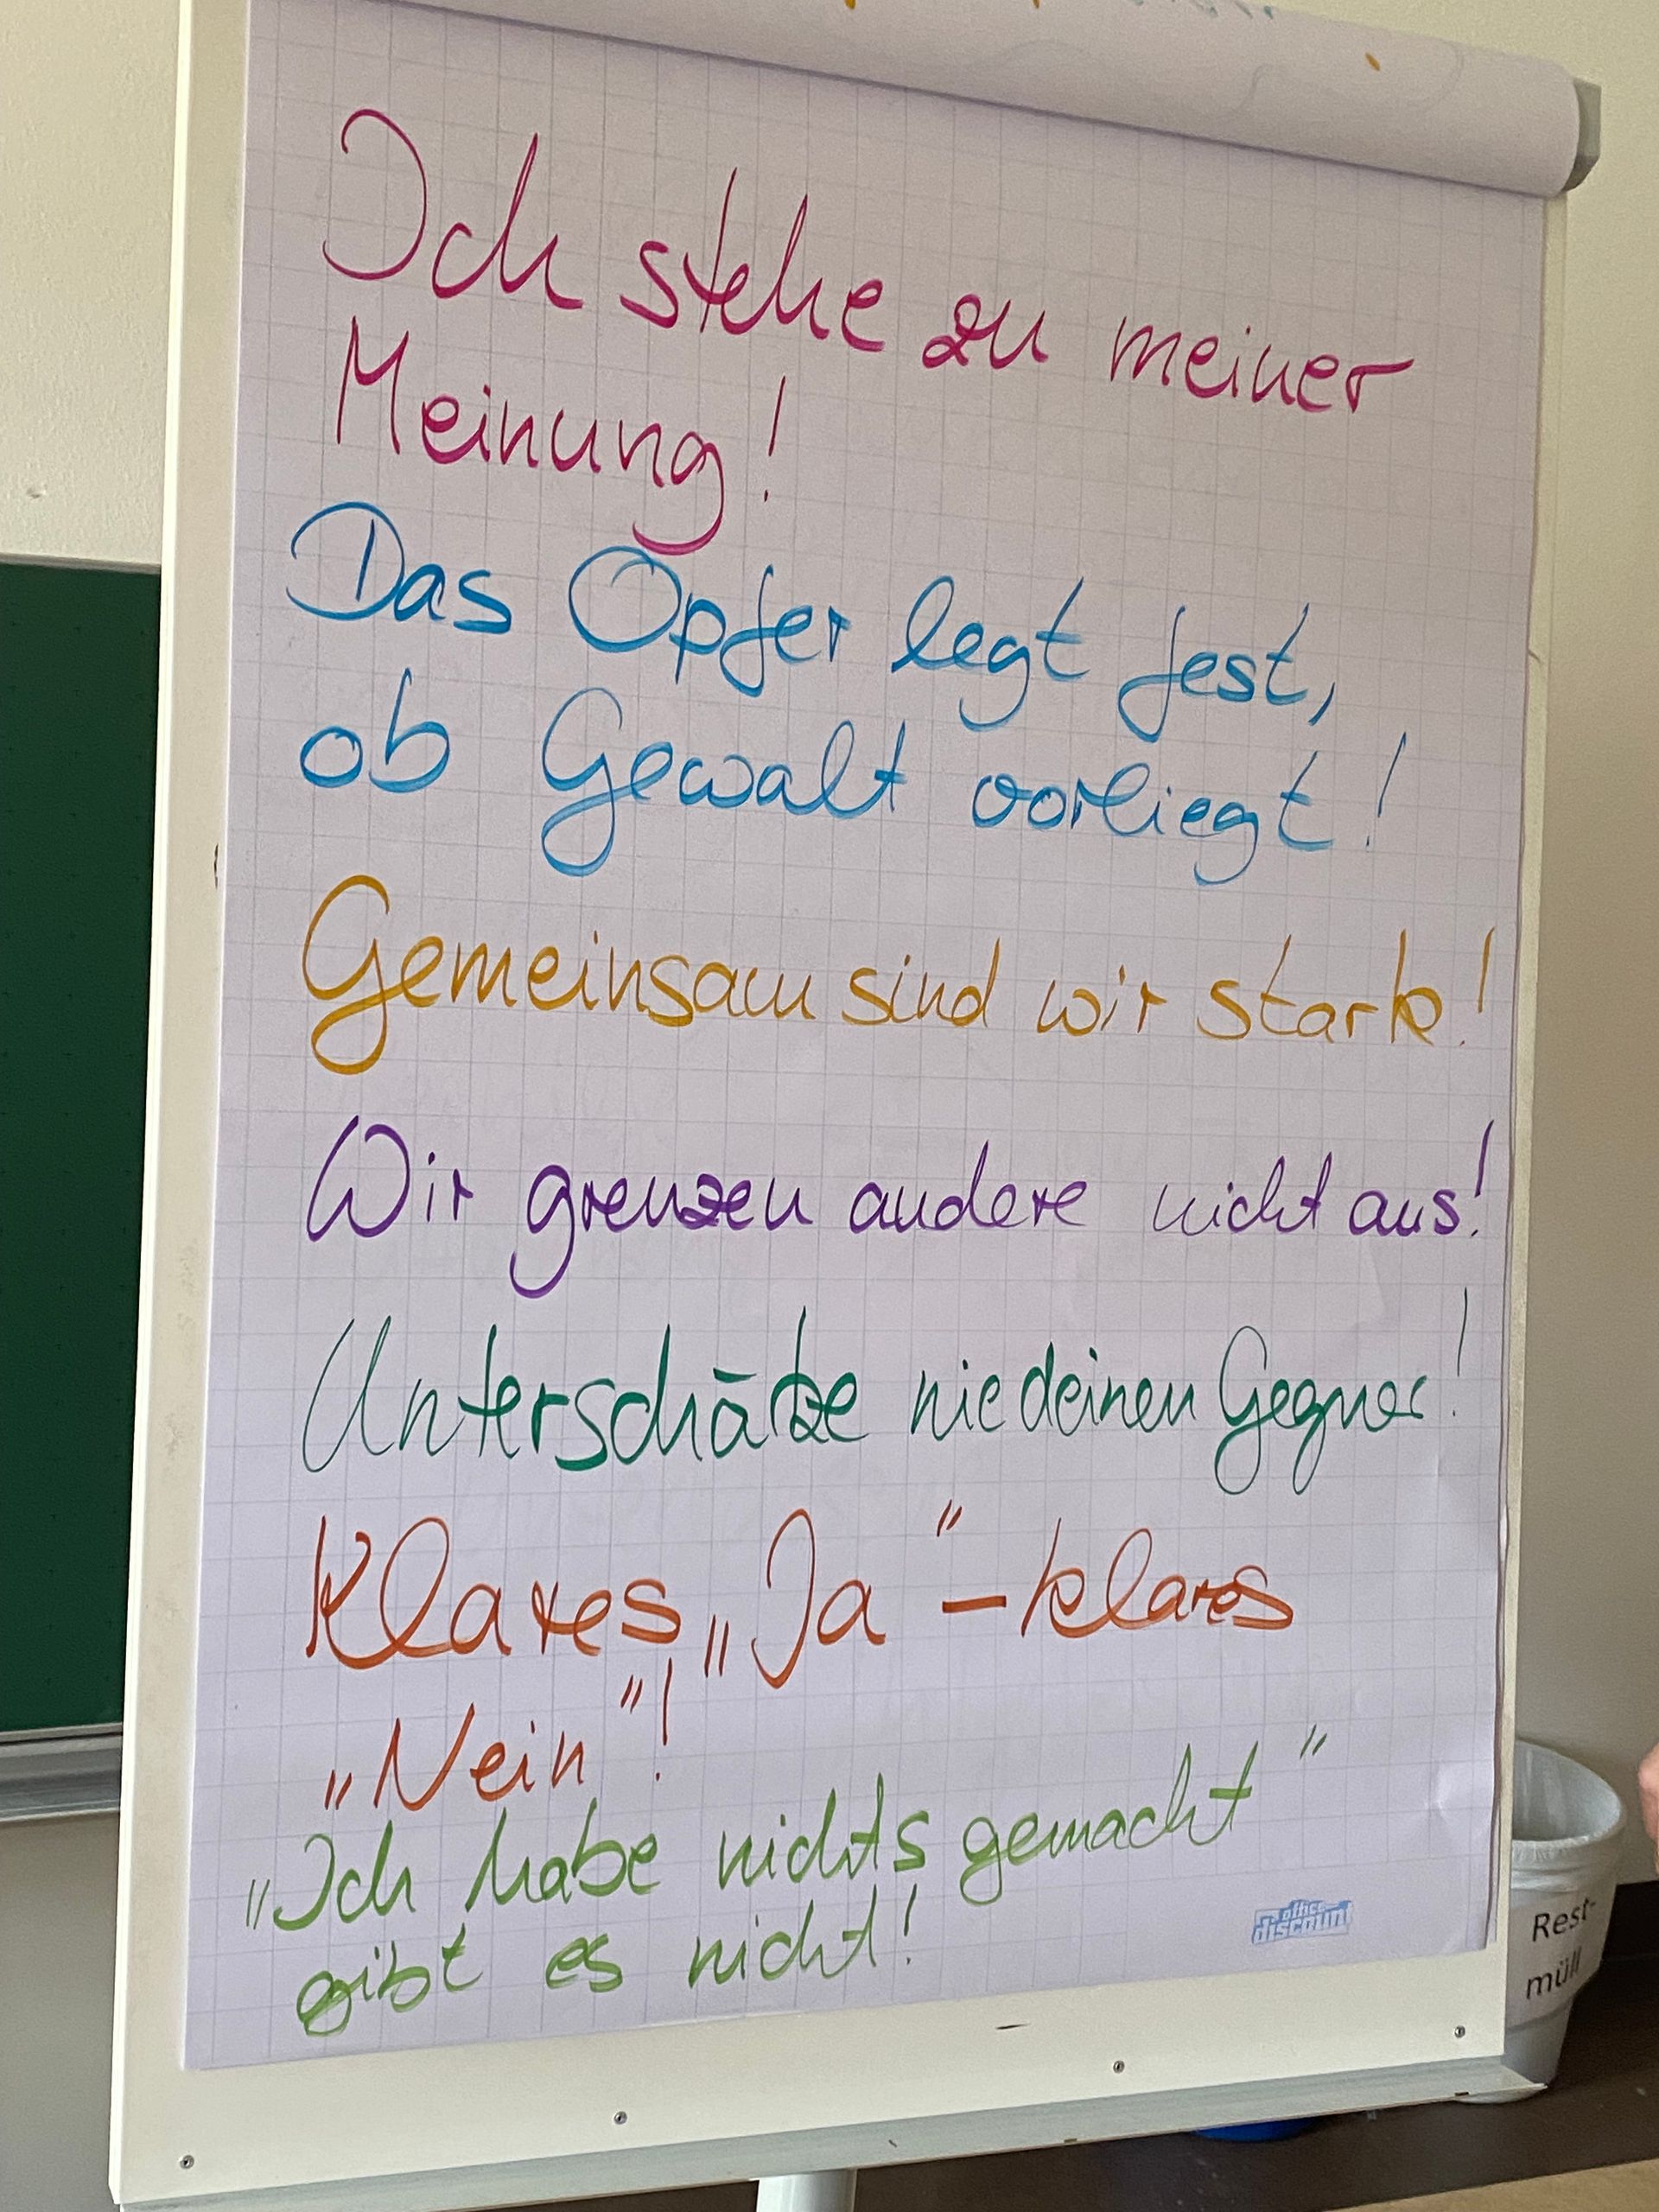 Ich stehe zu meiner
Meinung!
Das Opfer legt fest,
ob Gewalt vorliegt!
Gemeinsam sind wir stark!
Wir grenzen andere nicht aus!
Unterschätze nie deinen Gegner!
Klares „Ja" – klares
„Nein"!
„Ich habe nichts gemacht"
gibt es nicht!
office
discount
Rest-
müll